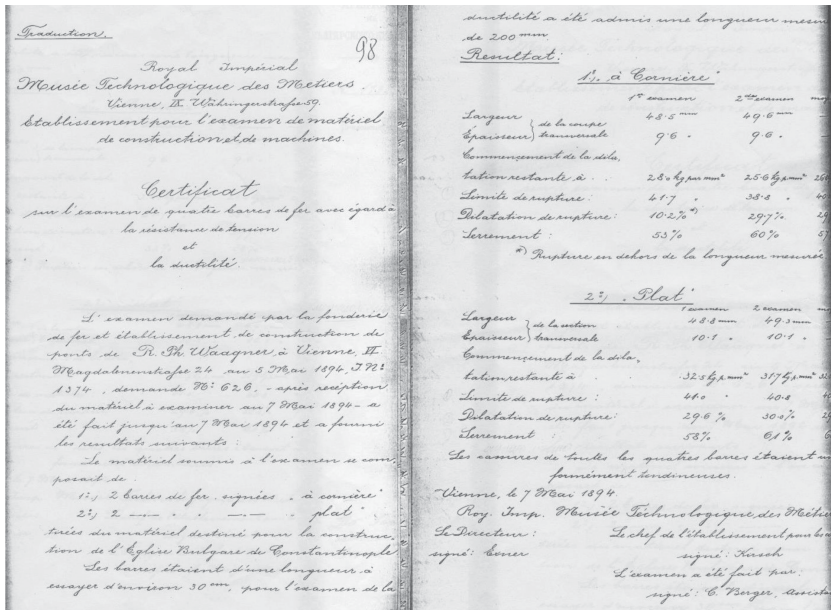 Traduction.
98
Royal Impérial
Musée Technologique des Metiers.
Vienne, IX Währingerstraße 59.
Etablissement pour l'examen de matériel
de construction et de machines.
Certificat
sur l'examen de quatre barres de fer avec égard à
la résistance de tension
et
la ductilité.
L'examen demandé par la fonderie
de fer et établissement de construction de
ponts de R. Ph. Waagner à Vienne, VI
Magdalenenstraße 24 au 5 Mai 1894, J.N°
1374, demande N° 626. - après reception
du matériel à examiner au 7 Mai 1894 - a
été fait jusqu'au 7 Mai 1894 et a fourni
les resultats suivants:
Le matériel soumis à l'examen se com
posait de
1°, 2 barres de fer signées " à cornière"
2°, 2 —— " " —·— " plat"
tirées du matériel destiné pour la construc,
tion de l'Eglise Bulgare de Constantinople
Les barres étaient d'une longueur à
essayer d'environ 30 cm, pour l'examen de la
ductilité a été admis une longueur
de 200 mm.
Resultat:
1°, à Cornière"
1er examen 2de examen
Largeur } de la coupe 48·5 mm 49·6 mm
Epaisseur } transversale 9·6 " 9·6 "
Commencement de la dila,
tation restante à . . 28·0 kg par mm² 25·6 kg p. mm²
Limite de rupture: 41·7 " 38·8 "
Dilatation de rupture: 10·2% *) 29·7%
Serrement: 53% 60%
*) Rupture en dehors de la longueur mesurée
2°, "Plat"
1 examen 2 examen
Largeur } de la section 48·8 mm 49·3 mm
Epaisseur } transversale 10·1 " 10·1 "
Commencement de la dila,
tation restante à 32·5 kg p. mm² 31·7 kg p. mm²
Limite de rupture: 41·0 " 40·8 "
Dilatation de rupture: 29·6% 30·0%
Serrement : 58% 61%
Les cassures de toutes les quatres barres étaient
formément tendineuses.
Vienne, le 7 Mai 1894.
Roy. Imp. Musée Technologique des Métie
Le Directeur: Le chef de l'établissement pour les
signé: Exner signé: Kirsch
L'examen a été fait par:
signé: C. Berger, Assista